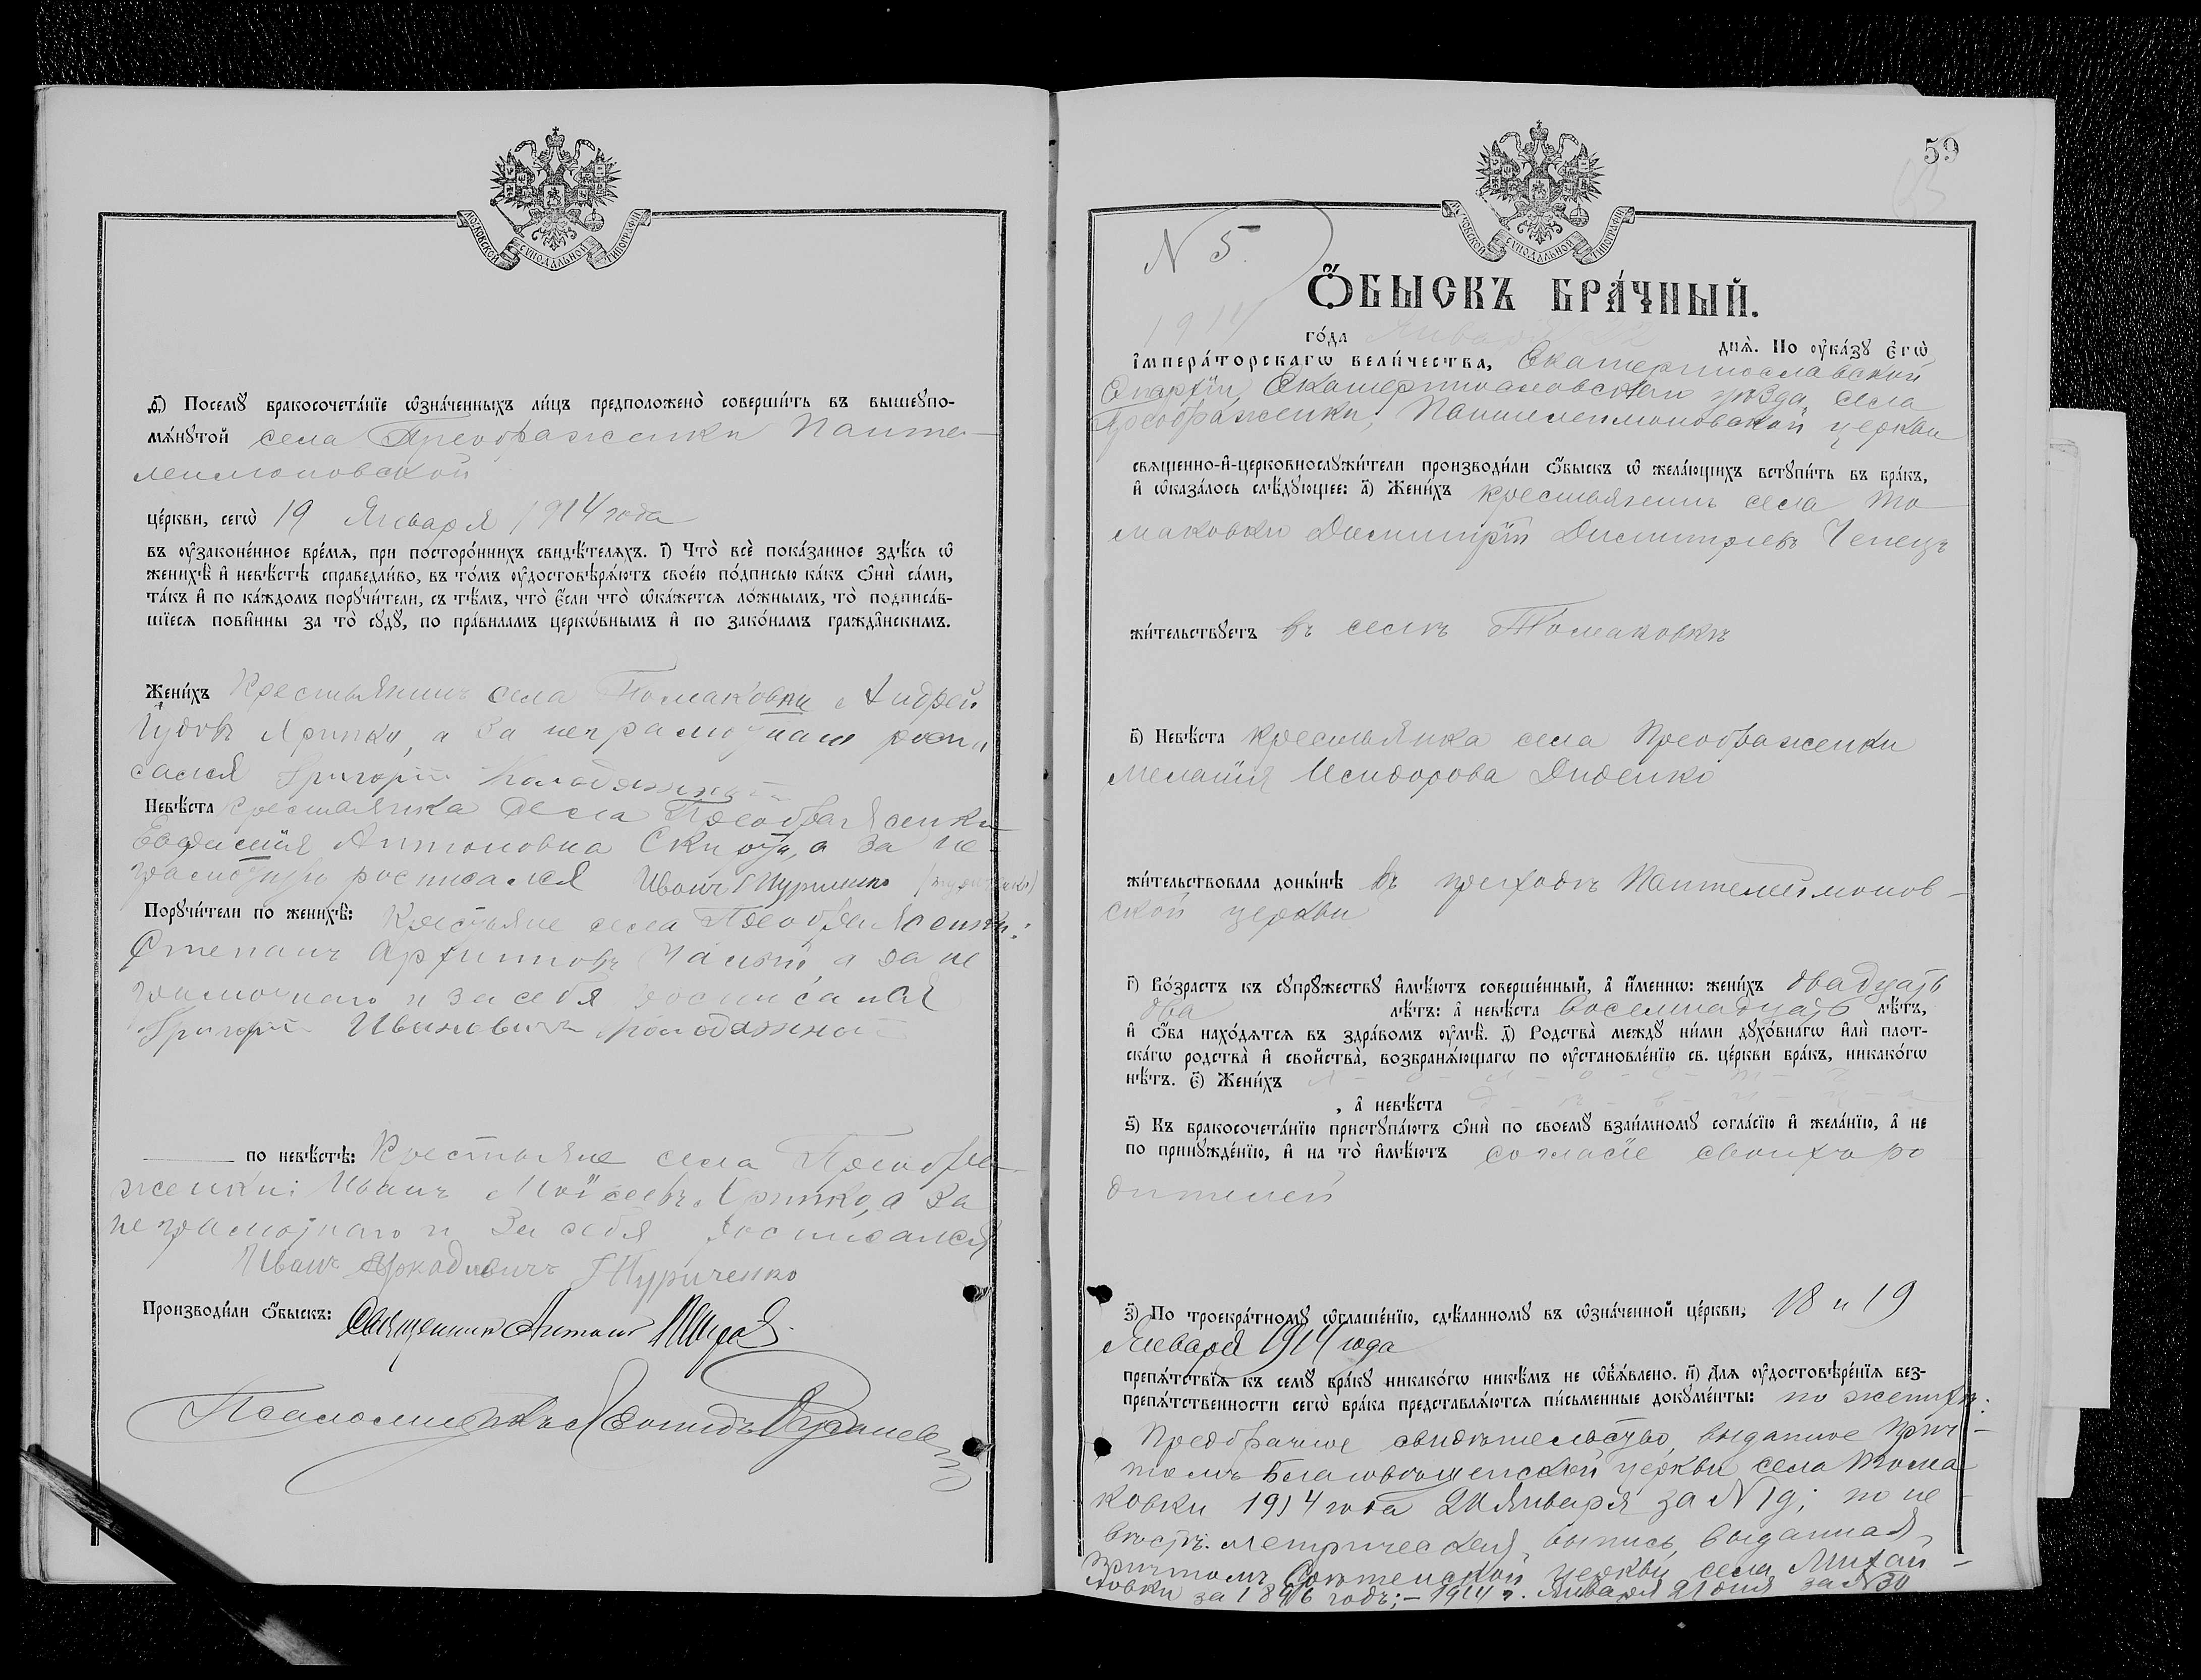 МОСКОВСКОЙ СУНОДАЛЬНОЙ ТИПОГРАФІИ
ѳ҃) Посемꙋ̀ бракосочета́нїе ѡ҆зна́ченныхъ ли́цъ предположено̀ соверши́ть въ вышеꙋпо-
мѧ́нꙋтой села Преображенки Панте-
леимоновской
це́ркви, сегѡ̀ 19 Января 1914 года
въ ᲂу҆зако́ненное вре́мѧ, при посторо́ннихъ свидѣ́телѧхъ. і҃) Что̀ всѐ пока́занное здѣ́сь ѡ҆
женихѣ̀ и҆ невѣ́стѣ справедли́во, въ то́мъ ᲂу҆достовѣрѧ́ютъ свое́ю по́дписью ка́къ ѻ҆нѝ са́ми,
та́къ и҆ по ка́ждомъ порꙋчи́тели, съ тѣ́мъ, что̀ є҆́сли что̀ ѡ҆ка́жетсѧ ло́жнымъ, то̀ подписа́в-
шїесѧ пови́нны за то̀ сꙋдꙋ̀, по пра́виламъ церко́внымъ и҆ по зако́намъ гражда́нскимъ.
Жени́хъ Крестьянинъ села Томаковки Андрей
Іудовъ Яринко, а за неграмотнаго роспи
сался Григорій Колодяжной
Невѣ́ста Крестьянка села Преображенки
Евфимія Антоновна Скиба, а за не
грамотную росписался Иванъ
Порꙋчи́тели по женихѣ̀: Крестьяне села Преображенки:
Степанъ Архиповъ а за не
грамотнаго и за себя росписался
Григорій Ивановичъ Колодяжной
по невѣ́стѣ: Крестьяне села Преобра-
женки: Иванъ Моѵсеевъ Хрипко, а за
неграмотнаго и за себя росписался
Иванъ Аркадиевичъ Туриченко
Производи́ли ѻ҆́быскъ: Священникъ Антоній
Псаломщикъ Леонидъ
59
МОСКОВСКОЙ СУНОДАЛЬНОЙ ТИПОГРАФІИ
N 5.
Ѻ҆́БЫСКЪ БРА́ЧНЫЙ.
1914 го́да Января днѧ̀. По ᲂу҆ка́зꙋ є҆гѡ̀
і҆мпера́торскагѡ вели́чества, Екатеринославской
Епархіи, Екатеринославскаго уѣзда, села
Преображенки, Пантелеимоновской церкви
свѧще́нно-и҆-церковнослꙋжи́тели производи́ли ѻ҆́быскъ ѡ҆ жела́ющихъ встꙋпи́ть въ бра́къ,
и҆ ѡ҆каза́лось слѣ́дꙋющее: а҃) Жени́хъ крестьянинъ села То
маковки Димитрій Димитріевъ Чепецъ
жи́тельствꙋетъ въ селѣ Томаковкѣ
в҃) Невѣ́ста крестьянка села Преображенки
Меланія Исидорова Диденко
жи́тельствовала доны́нѣ въ приходѣ Пантелеимонов-
ской церкви
г҃) Во́зрастъ къ сꙋпрꙋ́жествꙋ и҆мѣ́ютъ соверше́нный, а҆ и҆́меннѡ: жени́хъ двадцать
два лѣ́тъ: а҆ невѣ́ста восемнадцать лѣ́тъ,
и҆ ѻ҆́ба нахо́дѧтсѧ въ здра́вомъ ᲂу҆мѣ̀. д҃) Родства̀ междꙋ̀ ни́ми дꙋхо́внагѡ и҆лѝ плот-
ска́гѡ родства̀ и҆ свойства̀, возбранѧ́ющагѡ по ᲂу҆становле́нїю св. це́ркви бра́къ, никако́гѡ
нѣ́тъ. є҃) Жени́хъ х - о - л - о - с - т - ъ
, а҆ невѣ́ста д - ѣ - в - и - ц - а
ѕ҃) Къ бракосочета́нїю пристꙋпа́ютъ ѻ҆нѝ по своемꙋ̀ взаи́мномꙋ согла́сїю и҆ жела́нїю, а҆ не
по принꙋжде́нїю, и҆ на то̀ и҆мѣ́ютъ согласіе своихъ ро
дителей
з҃) По троекра́тномꙋ ѡ҆глаше́нїю, сдѣ́ланномꙋ въ ѡ҆зна́ченной це́ркви, 18 и 19
Января 1914 года
препѧ́тствїѧ къ семꙋ̀ бра́кꙋ никако́гѡ никѣ́мъ не ѡ҆б̾ѧ́влено. и҃) Длѧ ᲂу҆достовѣре́нїѧ без-
препѧ́тственности сегѡ̀ бра́ка представлѧ́ютсѧ пи́сьменные докꙋме́нты: по женихѣ:
Предбрачное свидѣтельство, выданное прич-
томъ Благовѣщенской церкви села Тома
ковки 1914 года Января за N 19; по не
вѣстѣ: метрическая выпись, выданная
причтомъ церкви села Михай-
ловки за 1896 годъ; – 1914 г. Января 21 дня за N 30